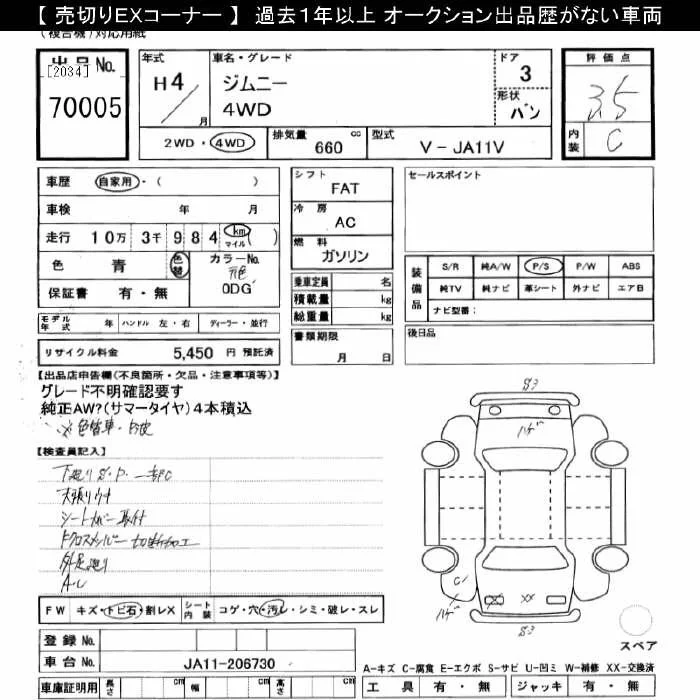 【 売切りEXコーナー 】 過去1年以上 オークション出品歴がない車両
(複合機)対応用紙
出品 No.
[2034]
70005
年式
H4
月
車名・グレード
ジムニー
4WD
ドア
3
形状
バン
評価点
3.5
内装
C
2WD・4WD
排気量
660
cc
型式
V－JA11V
車歴 自家用・( )
車検 年 月
走行 10万 3千 984 km マイル ( )
色 青 色替 カラーNo. 元色 0DG
保証書 有・無
モデル年式 年 ハンドル 左・右 ディーラー・並行
リサイクル料金 5,450 円 預託済
シフト
FAT
冷房
AC
燃料
ガソリン
乗車定員 名
積載量 kg
総重量 kg
書類期限
月 日
セールスポイント
装備品
S/R 純A/W P/S P/W ABS
純TV 純ナビ 革シート 外ナビ エアB
ナビ型番：
後日品
【出品店申告欄(不良箇所・欠品・注意事項等)】
グレード不明確認要す
純正AW?(サマータイヤ)4本積込
色替車・
【検査員記入】
下廻りS.P.一部C
天張りウキ
シートカバー取付
クロスメンバー切断加工
外足廻り
A・U
S3
ハゲ
C
ハゲ
XX
S3
スペア
FW キズ・トビ石・割レX
シート内装 コゲ・穴・汚レ・シミ・破レ・スレ
登録 No.
車台 No. JA11-206730
車庫証明用 長さ cm 幅 cm 高さ cm
A-キズ C-腐食 E-エクボ S-サビ U-凹ミ W-補修 XX-交換済
工具 有・無 ジャッキ 有・無